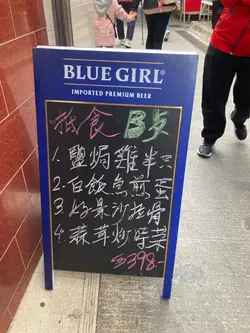 BLUE GIRL®
IMPORTED PREMIUM BEER
抵食 B歺
1. 鹽焗雞半只
2. 白飯魚煎蛋
3. 好果沙拄骨
4. 蒜茸炒時菜
$398-